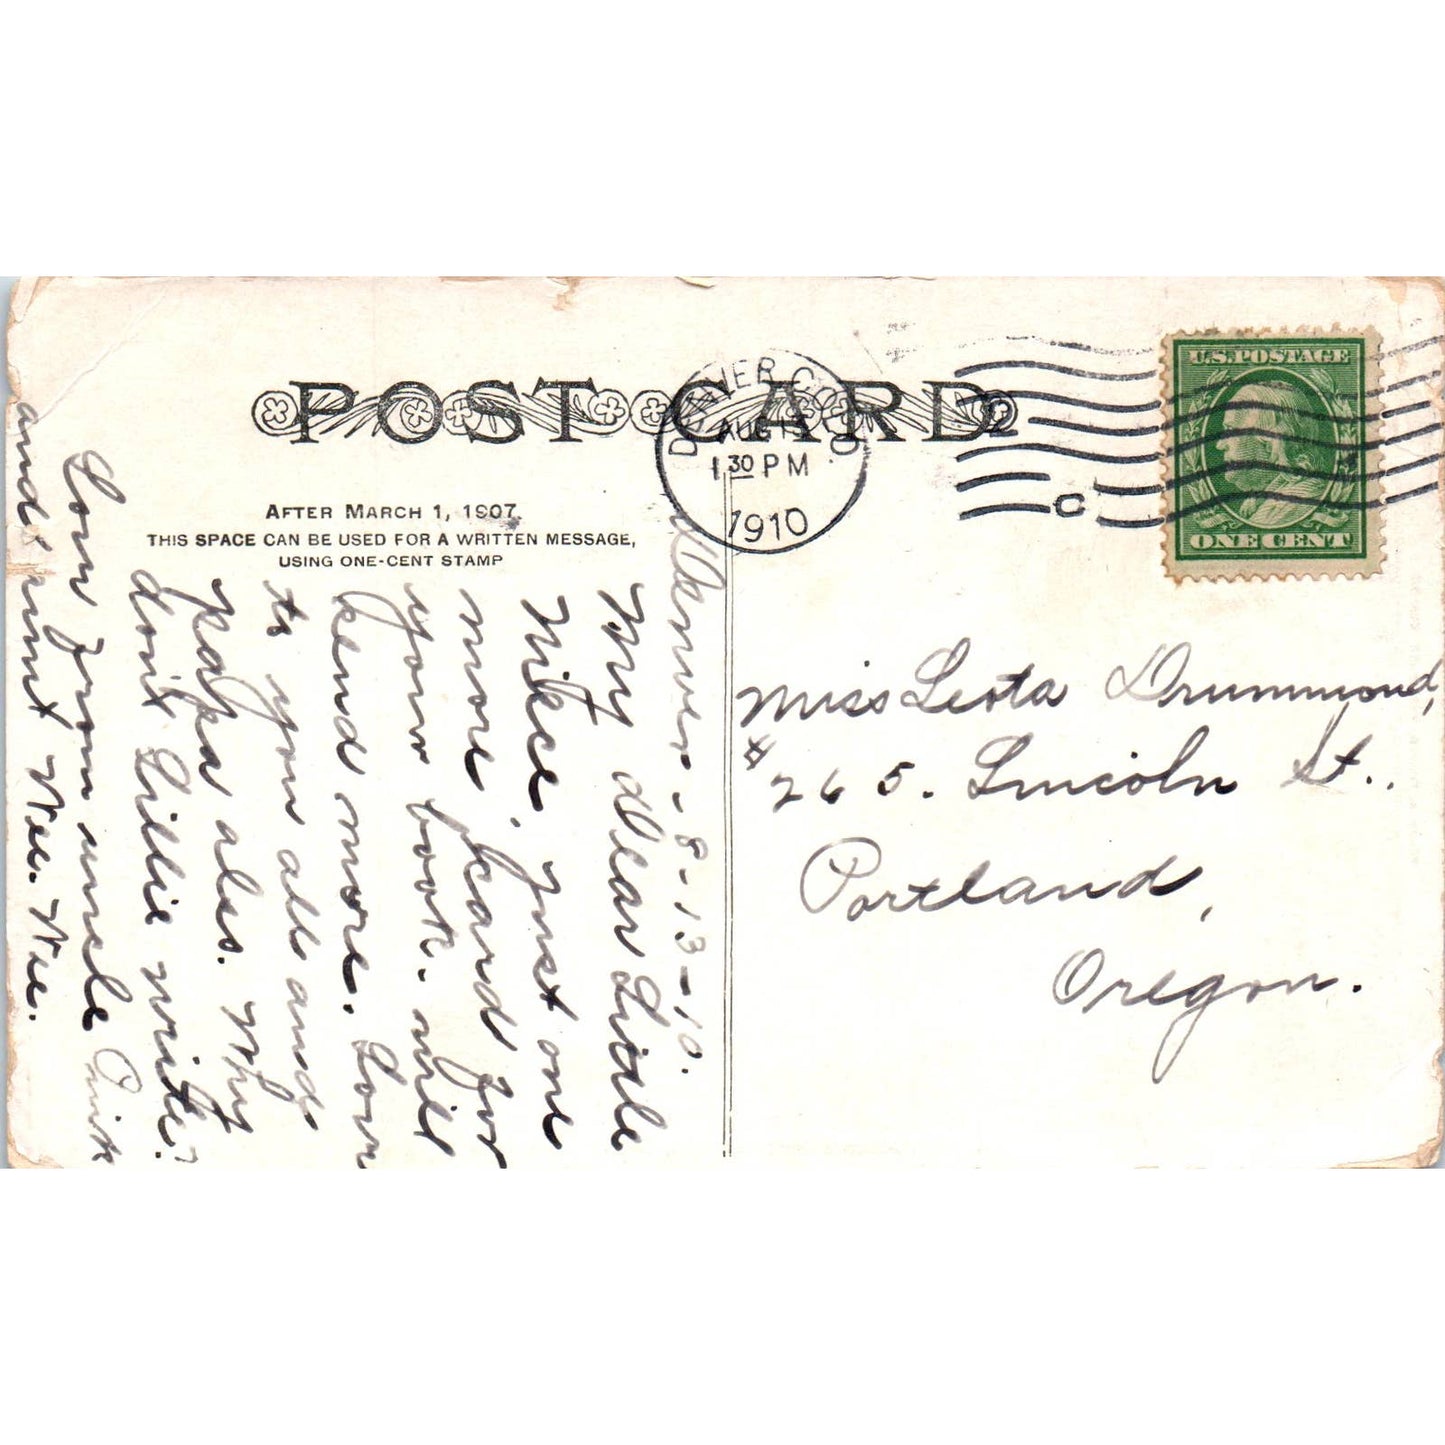 POST CARD
DENVER COLO.
AUG 13
1 30 PM
1910
C
U.S. POSTAGE
ONE CENT
AFTER MARCH 1, 1907.
THIS SPACE CAN BE USED FOR A WRITTEN MESSAGE,
USING ONE-CENT STAMP
Denver. 8-13-10.
My dear Little
Niece, Just one
more card for
your book. will
send more. Love
to you all and
papa also. Why
don't Lillie write?
Love from uncle
and aunt Wee. Wee.
Miss Leota Drummond,
# 265. Lincoln St..
Portland,
Oregon.